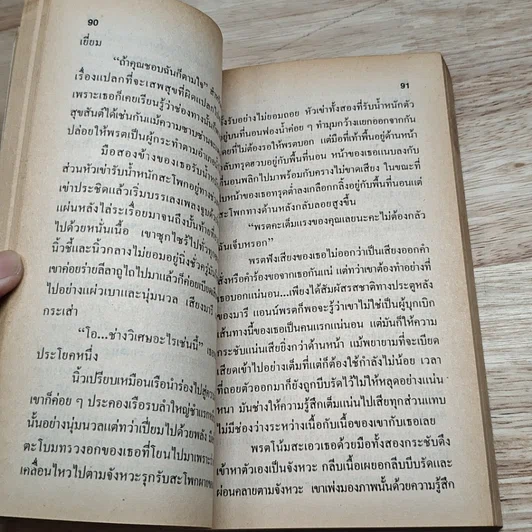 90
เยี่ยม
“ถ้าคุณชอบฉันก็ตามใจ”
เรื่องแปลกที่จะเสพสุขที่ผิดแปลก
เพราะเธอก็เคยเรียนรู้ว่าช่องทางนั้น
สุขสันต์ได้เช่นกันแม้ความซาบซ่าน
ปล่อยให้พรตเป็นผู้กระทำตามอำเภอ
มือสองข้างของเธอรับน้ำหนัก
ส่วนหัวเข่ารับน้ำหนักสะโพกอยู่ทาง
เข่าประชิดแล้วเริ่มบรรเลงเพลง
แผ่นหลังไล่ระเรื่อยมาจนถึงบั้นท้าย
ไปด้วยหนั่นเนื้อ เขาซุกไซร้ไปทั่วทุก
นิ้วชี้และนิ้วกลางไม่ยอมอยู่นิ่งชั่ว
เขาค่อยร่ายลีลาถูไถไปมาแล้วก็ค่อย
ไปอย่างแผ่วเบาและนุ่มนวล เสียง
กระเส่า
“โอ...ช่างวิเศษอะไรเช่นนี้”
ประโยคหนึ่ง
นิ้วเปรียบเหมือนเรือนำร่องไป
เขาก็ค่อย ๆ ประคองเรือรบลำใหญ่
นั้นอย่างนุ่มนวลแต่ทว่าเปี่ยมไปด้วยพลัง
ตะโบมทรวงอกของเธอที่โยนไปมาเพราะ
เคลื่อนไหวไปตามจังหวะรุกรับสะโพก
91
ทั้งรับอย่างไม่ยอมถอย หัวเข่าทั้งสองที่รับน้ำหนักตัว
อยู่บนที่นอนฟองน้ำค่อย ๆ ทำมุมกว้างแยกออกจากกัน
โดยที่ไม่ต้องรอให้พรตบอก แต่มือที่เท้าพื้นอยู่ด้านหน้า
กลับทรุดฮวบอยู่กับพื้นที่นอน หน้าของเธอแนบลงกับ
นอนพลิกไปมาพร้อมกับครางไม่ขาดเสียง ในขณะที่
หน้าของเธอทรุดต่ำลงเกลือกกลิ้งอยู่กับพื้นที่นอนแต่
สะโพกทางด้านหลังกลับลอยสูงขึ้น
“พรตคะเต็มแรงของคุณเลยนะคะไม่ต้องกลัว
ฉันเจ็บหรอก”
พรตฟังเสียงของเธอไม่ออกว่าเป็นเสียงออกคำ
สั่งหรือคำร้องขอจากเธอกันแน่ แต่ทว่าเขาต้องทำอย่างที่
เธอบอกแน่นอน...เพียงได้สัมผัสรสชาติทางประตูหลัง
ของมารี แอนน์พรตก็พอจะรู้ว่าเขาไม่ใช่เป็นผู้บุกเบิก
เส้นทางนี้ของเธอเป็นคนแรกแน่นอน แต่มันก็ให้ความ
กระชับแน่นเสียยิ่งกว่าด้านหน้า แม้พยายามที่จะเบียด
เสียดเข้าไปอย่างเต็มที่แต่ก็ต้องใช้กำลังไม่น้อย เวลา
ที่ถอยตัวออกมาก็ยังถูกบีบรัดไว้ไม่ให้หลุดอย่างแน่น
หนา มันช่างให้ความรู้สึกเต็มแน่นไปเสียทุกส่วนแทบ
ไม่มีช่องว่างระหว่างเนื้อกับเนื้อของเขากับเธอเลย
พรตโน้มสะเอวเธอด้วยมือทั้งสองกระชับดึง
เข้าหาตัวเองเป็นจังหวะ กลีบเนื้อเผยอกลีบบีบรัดและ
ผ่อนคลายตามจังหวะ เขาเพ่งมองภาพนั้นด้วยความรู้สึก